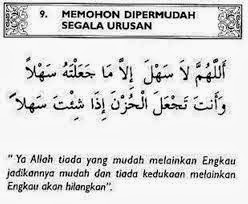 9. MEMOHON DIPERMUDAH
SEGALA URUSAN
اَللّٰهُمَّ لَا سَهْلَ إِلَّا مَا جَعَلْتَهُ سَهْلًا
وَأَنْتَ تَجْعَلُ الْحُزْنَ إِذَا شِئْتَ سَهْلًا
" Ya Allah tiada yang mudah melainkan Engkau
jadikannya mudah dan tiada kedukaan melainkan
Engkau akan hilangkan".